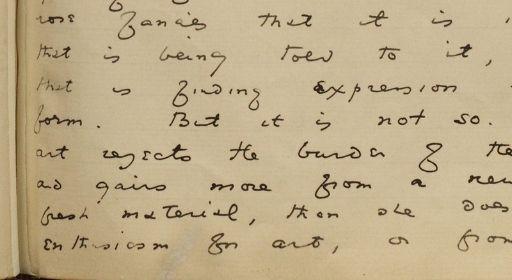 rose fancies that it is
that is being told to it,
that is finding expression
form. But it is not so.
art rejects the burden of the
and gains more from a new
fresh material, than she does
enthusiasm for art, or from